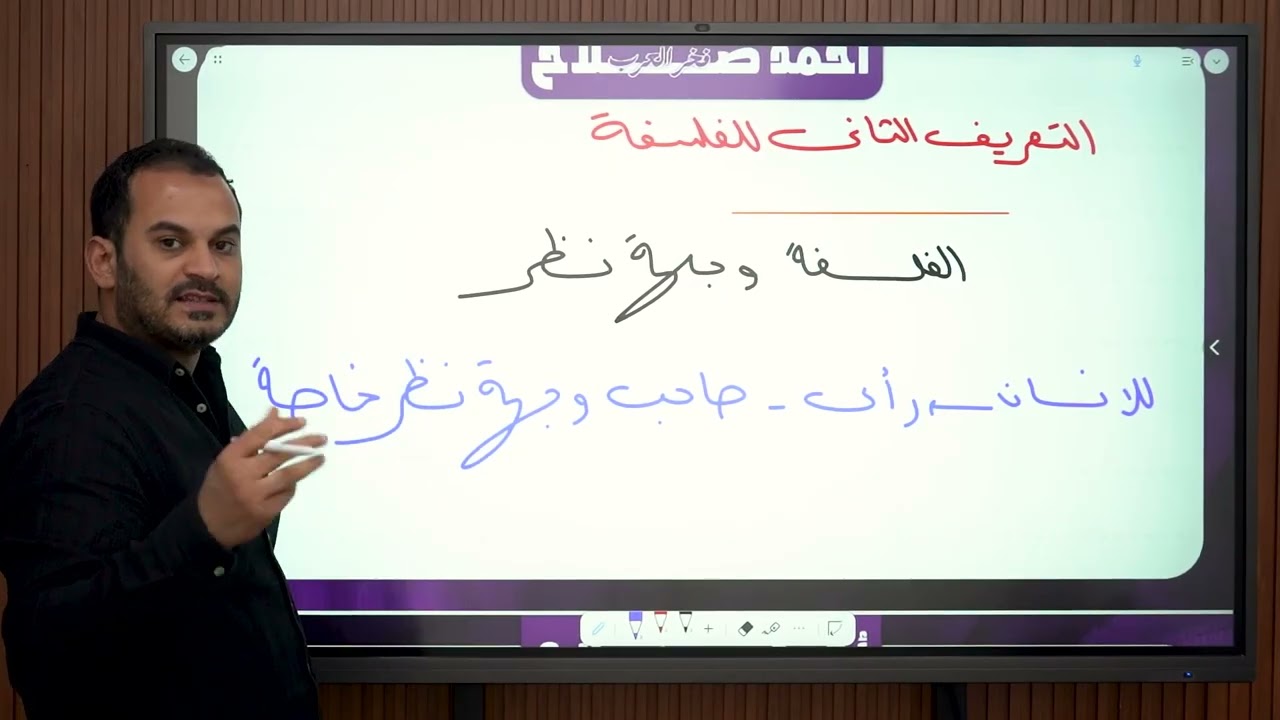 أحمد صلاح
فخر العرب
التعريف الثانى للفلسفة
الفلسفة وجهة نظر
للانسان رأى - صاحب وجهة نظر خاصة